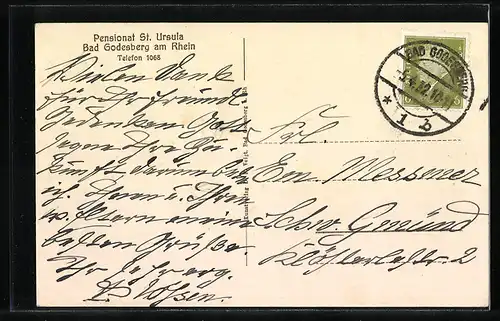 Pensionat St. Ursula
Bad Godesberg am Rhein
Telefon 1068
Vielen Dank
für Ihr freundl.
Gedenken. Gott
segne Ihre Zu-
kunft, darum bete
ich. Ihnen u. Ihren
w. Eltern meine
besten Grüße.
Ihr sehr erg.
BAD GODESBERG
* 1 b
Frl.
Em. Messmer
Schw. Gmünd
Klösterlestr. 2